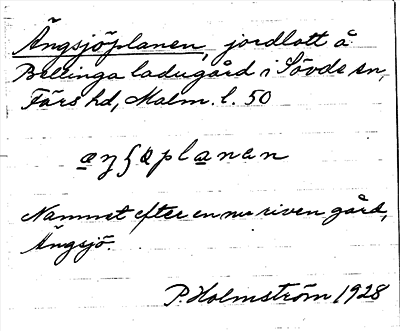 Ängsjöplanen, jordlott å
Bellinga ladugård i Sövde sn,
Färs hd, Malm. l. 50
æŋʃøplanan
Namnet efter en nu riven gård,
Ängsjö.
P. Holmström 1928